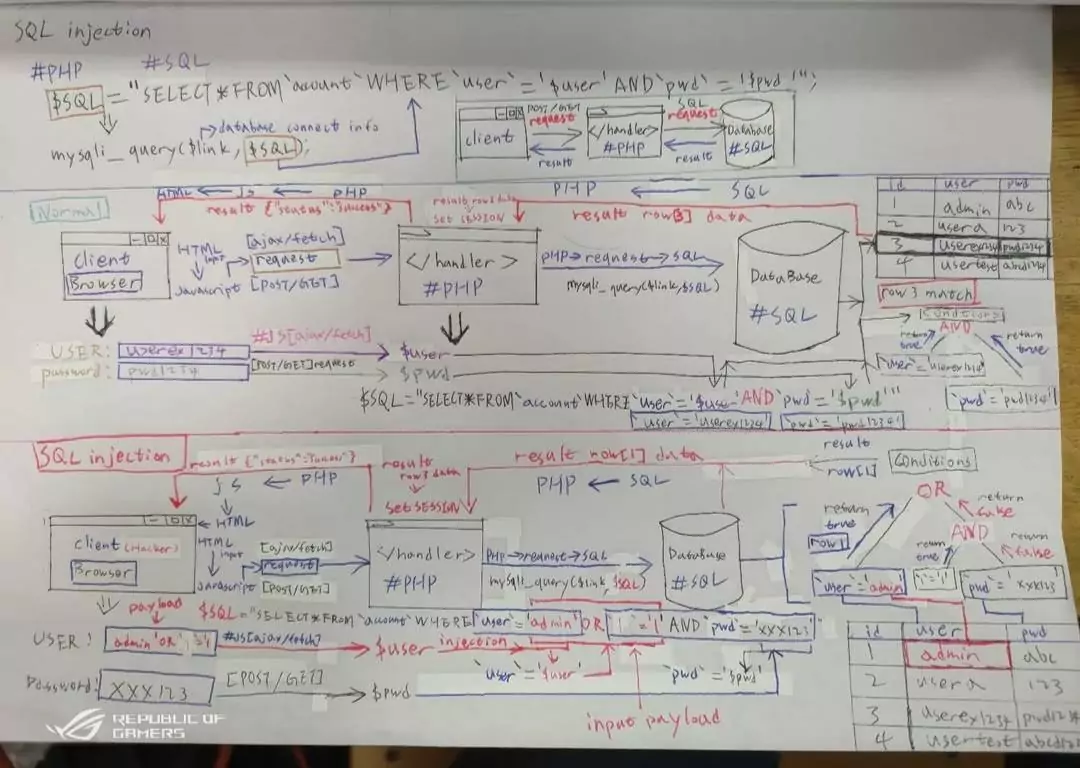 SQL injection
#PHP #SQL
$SQL="SELECT*FROM`account`WHERE`user`='$user'AND`pwd`='$pwd'";
database connect info
mysqli_query($link,$SQL);
client
POST/GET
request
result
</handler>
#PHP
SQL
request
result
DataBase
#SQL
Normal
HTML ← JS ← PHP
result {"status":"success"}
result row3 data
set SESSION
PHP ← SQL
result row[3] data
client
Browser
HTML
input
Javascript
[ajax/fetch]
request
[POST/GET]
</handler>
#PHP
PHP→request→SQL
mysqli_query($link,$SQL)
DataBase
#SQL
id user pwd
1 admin abc
2 usera 123
3 userex1234 pwd1234
4 usertest abcd1234
row3 match
Conditions
AND
return true
return true
`user`='userex1234'
`pwd`='pwd1234'
USER: userex1234 #JS[ajax/fetch] $user
password: pwd1234 [POST/GET]request $pwd
$SQL="SELECT*FROM`account`WHERE`user`='$user'AND`pwd`='$pwd'"
`user`='userex1234' `pwd`='pwd1234'
SQL injection
result {"status":"success"}
JS ← PHP
← HTML
result
row3 data
set SESSION
result row[1] data
PHP ← SQL
result
row[1]
Conditions
OR
return true
row1
return false
AND
return true
return false
`user`='admin'
'1'='1'
`pwd`='XXX123'
client (Hacker)
Browser
HTML
input
Javascript
[ajax/fetch]
request
[POST/GET]
</handler>
#PHP
PHP→request→SQL
mysqli_query($link,$SQL)
DataBase
#SQL
payload
$SQL="SELECT*FROM`account`WHERE`user`='admin'OR'1'='1'AND`pwd`='XXX123'
USER: admin'OR'1'='1 #JS[ajax/fetch] $user injection
`user`='$user' `pwd`='$pwd'
Password: XXX123 [POST/GET] $pwd
input payload
id user pwd
1 admin abc
2 usera 123
3 userex1234
4 usertest
REPUBLIC OF
GAMERS